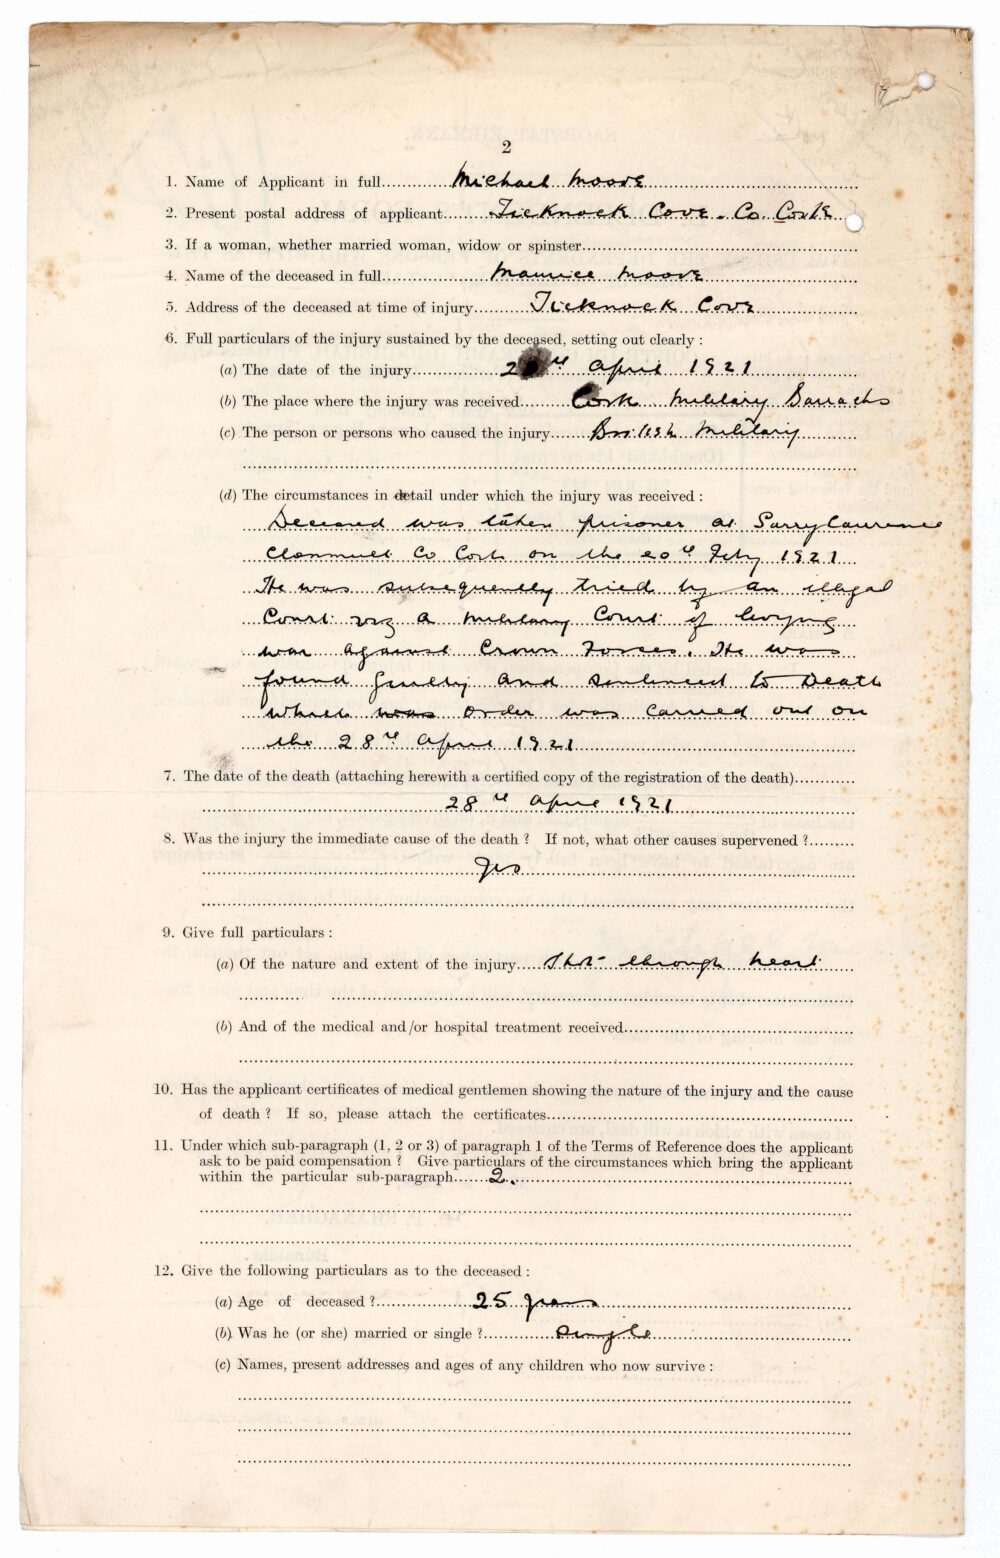 2
1. Name of Applicant in full Michael Moore
2. Present postal address of applicant Ticknock Cove. Co. Cork
3. If a woman, whether married woman, widow or spinster
4. Name of the deceased in full Maurice Moore
5. Address of the deceased at time of injury Ticknock Cove
6. Full particulars of the injury sustained by the deceased, setting out clearly :
(a) The date of the injury 28th April 1921
(b) The place where the injury was received Cork Military Barracks
(c) The person or persons who caused the injury British Military
(d) The circumstances in detail under which the injury was received :
Deceased was taken prisoner at Garrylaurence
Clonmult Co Cork on the 20th Feby 1921
He was subsequently tried by an illegal
Court viz a Military Court of levying
war against Crown Forces. He was
found guilty and sentenced to Death
which was order was carried out on
the 28th April 1921
7. The date of the death (attaching herewith a certified copy of the registration of the death)
28th April 1921
8. Was the injury the immediate cause of the death ? If not, what other causes supervened ?
Yes
9. Give full particulars :
(a) Of the nature and extent of the injury Shot through heart
(b) And of the medical and/or hospital treatment received
10. Has the applicant certificates of medical gentlemen showing the nature of the injury and the cause
of death ? If so, please attach the certificates
11. Under which sub-paragraph (1, 2 or 3) of paragraph 1 of the Terms of Reference does the applicant
ask to be paid compensation ? Give particulars of the circumstances which bring the applicant
within the particular sub-paragraph 2.
12. Give the following particulars as to the deceased :
(a) Age of deceased ? 25 years
(b) Was he (or she) married or single ? single
(c) Names, present addresses and ages of any children who now survive :